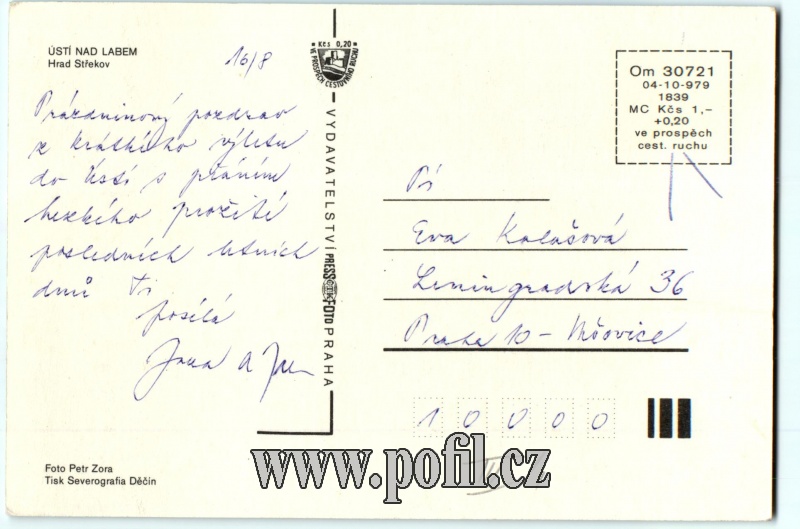 ÚSTÍ NAD LABEM
Hrad Střekov
16/8
Prázdninový pozdrav
z krátkého výletu
do Ústí s přáním
hezkého prožití
posledních letních
dnů Ti
posílá
Jana a
Foto Petr Zora
Tisk Severografia Děčín
Kčs 0,20
VE PROSPĚCH CESTOVNÍHO RUCHU
VYDAVATELSTVÍ PRESSFOTO PRAHA
Om 30721
04-10-979
1839
MC Kčs 1,–
+0,20
ve prospěch
cest. ruchu
Eva Kalašová
Leningradská 36
Praha 10 – Vršovice
10000
www.pofil.cz